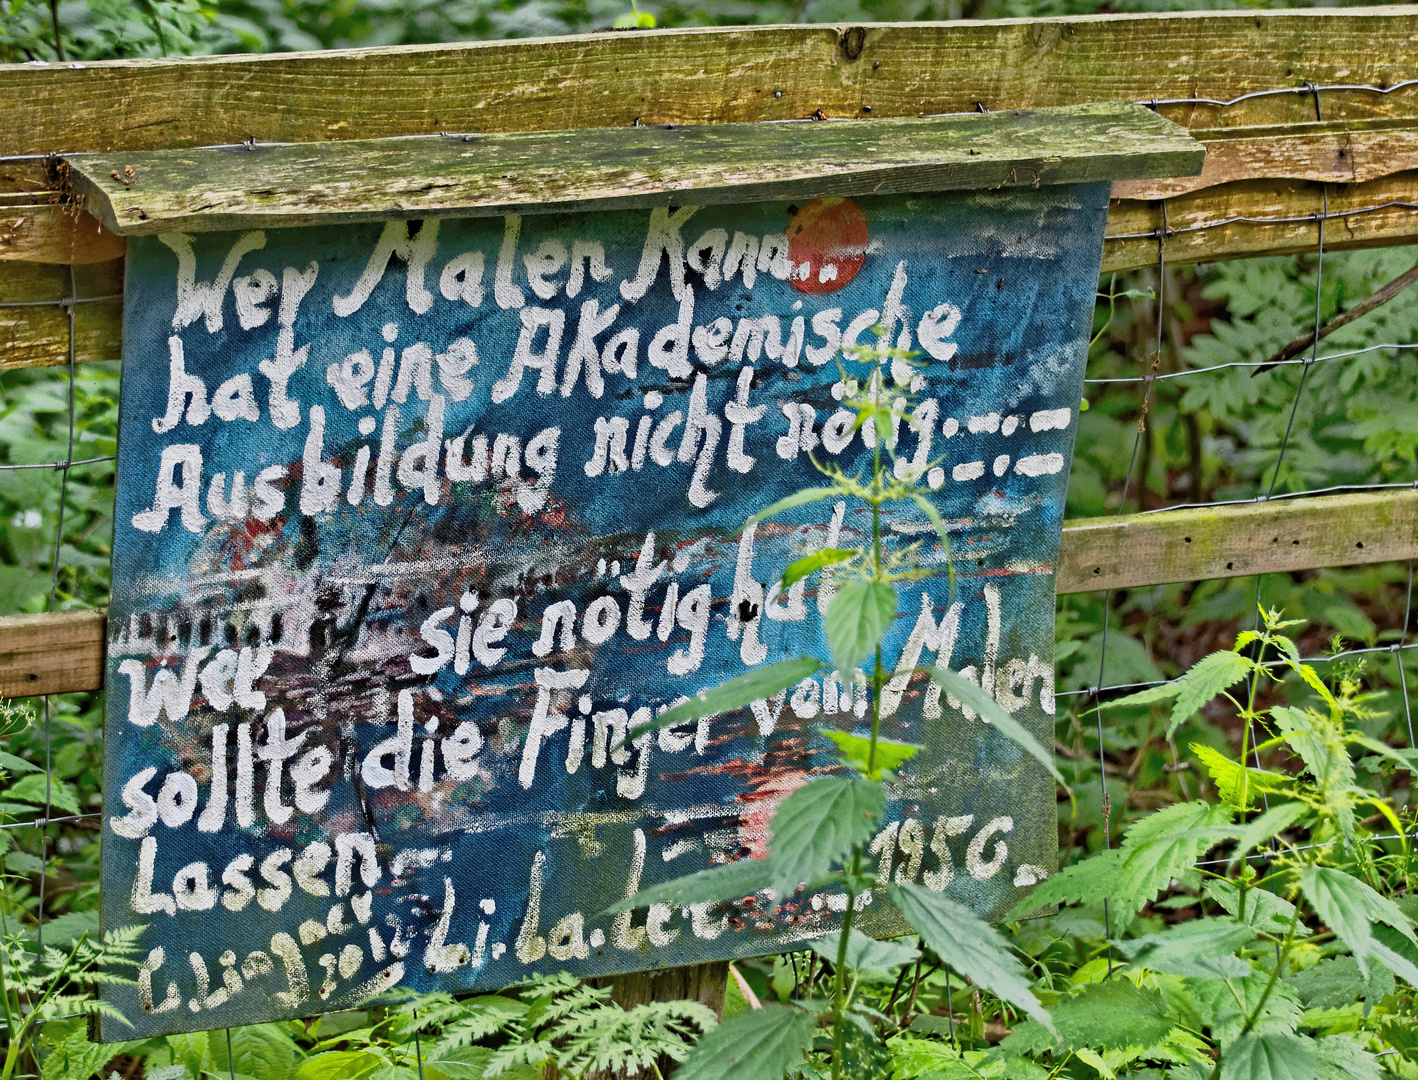 Wer Malen Kann...
hat eine Akademische
Ausbildung nicht nötig.-.-
.-.-
wer sie nötig hat
sollte die Finger vom Malen
Lassen.-
Li.La. 1956.